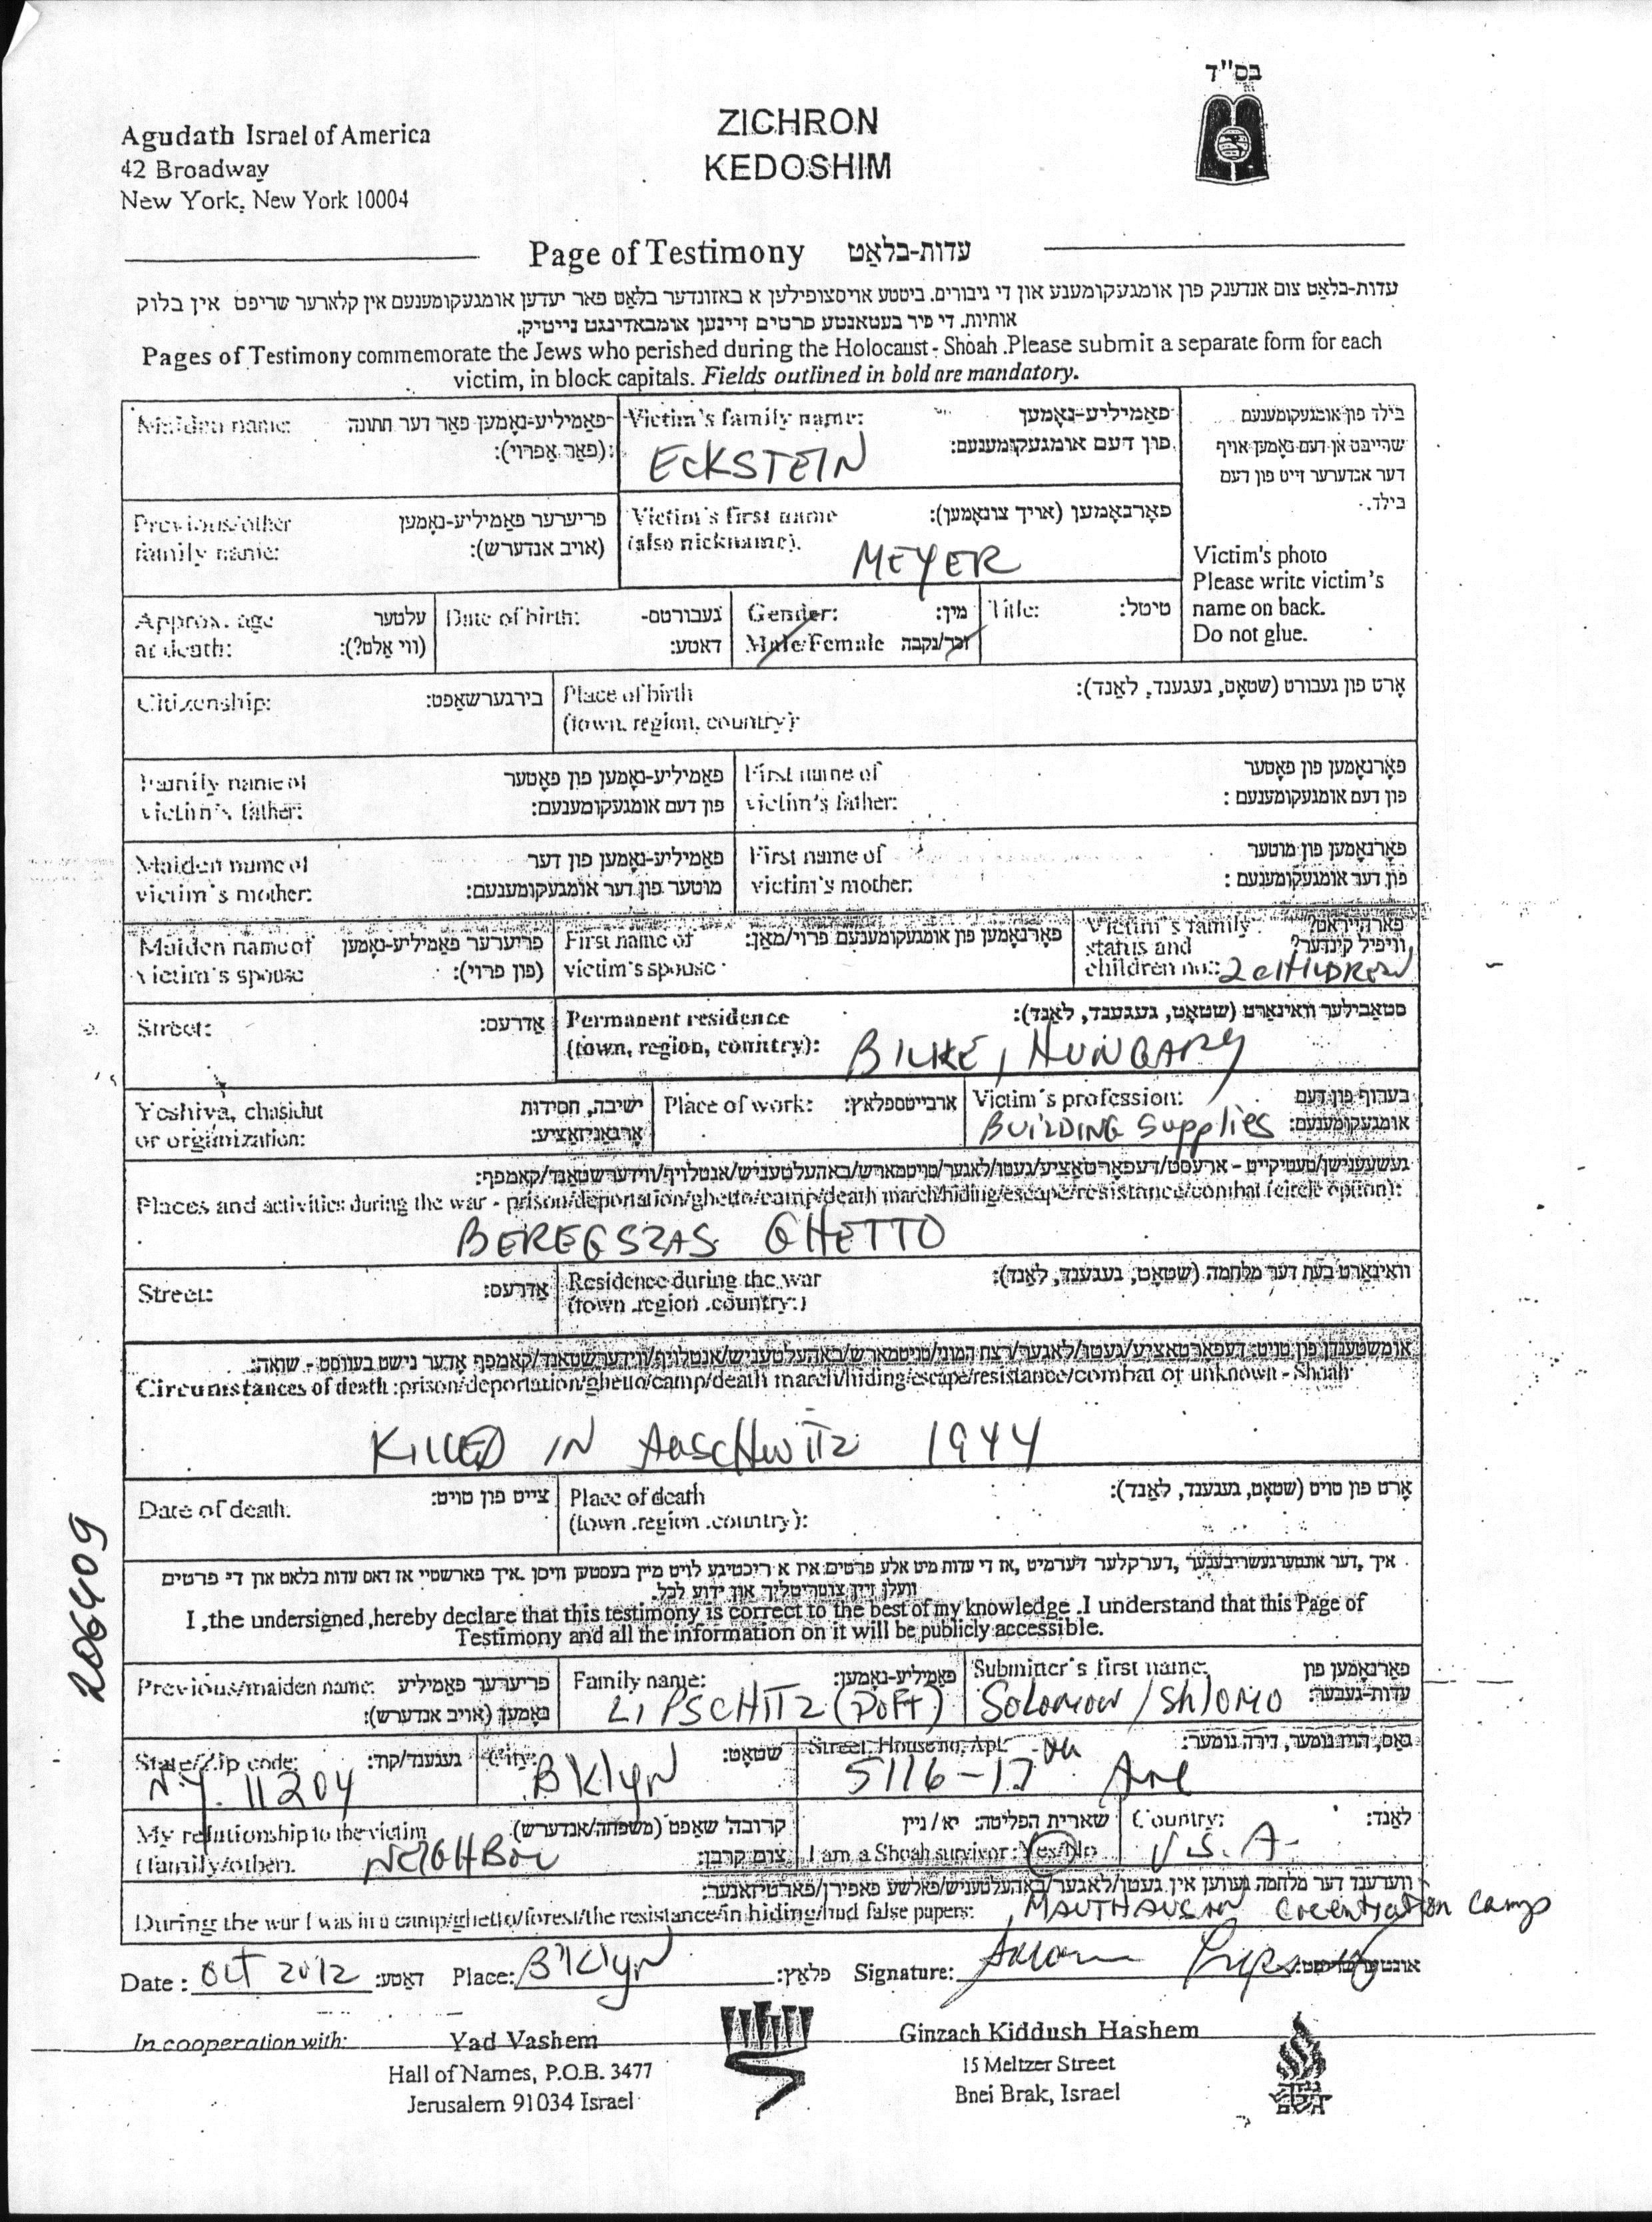 בס"ד
Agudath Israel of America
42 Broadway
New York, New York 10004
ZICHRON
KEDOSHIM
Page of Testimony עדות-בלאַט
עדות-בלאַט צום אנדענק פון אומגעקומענע און די גיבורים. ביטטע אויסצופילען א באזונדער בלאַט פאר יעדען אומגעקומענעם אין קלארער שריפט אין בלוק
אותיות. די פיר בעטאנטע פרטים זיינען אומבאדינגט נייטיק.
Pages of Testimony commemorate the Jews who perished during the Holocaust - Shoah .Please submit a separate form for each
victim, in block capitals. Fields outlined in bold are mandatory.
Maiden name: פאַמיליע-נאָמען פאַר דער חתונה
(פאַר אַפרוי):
Victim's family name: פאַמיליע-נאָמען
פון דעם אומגעקומענעם:
ECKSTEIN
בילד פון אומגעקומענעם
שהייבט אן דעם נאָמען אויף
דער אנדערער זייט פון דעם
בילד.
Previous/other פריערער פאַמיליע-נאָמען
family name: (אויב אנדערש):
Victim's first name פאָרנאָמען (אויך צונאָמען):
(also nickname).
MEYER
Victim's photo
Please write victim's
name on back.
Do not glue.
Approx. age עלטער
at death: (ווי אַלט?):
Date of birth: געבורטס-
דאַטע:
Gender: מין:
Male/Female זכר/נקבה
Title: טיטל:
Citizenship: בירגערשאַפט:
Place of birth אָרט פון געבורט (שטאָט, געגענד, לאַנד):
(town, region, country):
Family name of פאַמיליע-נאָמען פון פאָטער
victim's father: פון דעם אומגעקומענעם:
First name of פאָרנאָמען פון פאָטער
victim's father: פון דעם אומגעקומענעם :
Maiden name of פאַמיליע-נאָמען פון דער
victim's mother: מוטער פון דער אומגעקומענעם:
First name of פאָרנאָמען פון מוטער
victim's mother: פון דער אומגעקומענעם :
Maiden name of פריערער פאַמיליע-נאָמען
victim's spouse (פון פרוי):
First name of פאָרנאָמען פון אומגעקומענעם פרוי/מאַן:
victim's spouse
Victim's family פאַרהייראַט?
status and וויפיל קינדער?
children no.: 2 CHILDREN
Street: אַדרעס:
Permanent residence סטאַבילער וואוינאָרט (שטאָט, געגענד, לאַנד):
(town, region, country): BILKE, HUNGARY
Yeshiva, chasidut ישיבה, חסידות
or organization: אָרגאַניזאַציע:
Place of work: ארבייטספלאַץ:
Victim's profession: בערוף פון דעם
BUILDING Supplies אומגעקומענעם:
געשעענישן/טעטיקייט - ארעסט/דעפאָרטאַציע/געטו/לאַגער/טויטמארש/באהעלטעניש/אנטלויף/ווידערשטאַנד/קאמפף:
Places and activities during the war - prison/deportation/ghetto/camp/death march/hiding/escape/resistance/combat (circle option):
BEREGSZAS GHETTO
Street: אַדרעס:
Residence during the war וואוינאָרט בעת דער מלחמה (שטאָט, געגענד, לאַנד):
(town .region .country:)
אומשטענדן פון טויט: דעפאָרטאַציע/געטו/לאַגער/רצח המוני/טויטמארש/באהעלטעניש/אנטלויף/ווידערשטאַנד/קאמפף אָדער נישט בעווסט - שואה:
Circumstances of death :prison/deportation/ghetto/camp/death march/hiding/escape/resistance/combat or unknown - Shoah
KILLED IN AUSCHWITZ 1944
Date of death. צייט פון טויט:
Place of death אָרט פון טויט (שטאָט, געגענד, לאַנד):
(town .region .country):
206409
איך ,דער אונטערגעשריבענער ,דערקלער דערמיט ,אז די עדות מיט אלע פרטים איז א ריכטיגע לויט מיין בעסטען וויסן .איך פארשטיי אז דאס עדות בלאט און די פרטים
וועלן זיין צוטריטליך און ידוע לכל.
I ,the undersigned ,hereby declare that this testimony is correct to the best of my knowledge .I understand that this Page of
Testimony and all the information on it will be publicly accessible.
Previous/maiden name: פריערער פאַמיליע
נאָמען (אויב אנדערש):
Family name: פאַמיליע-נאָמען:
LIPSCHITZ (Doft)
Submitter's first name: פאָרנאָמען פון
עדות-געבער:
Solomon / Shlomo
State/Zip code: געגענד/קוד:
N.Y. 11204
City: שטאָט:
Bklyn
Street, House no, Apt. גאַס, הויז נומער, דירה נומער:
5116-17 th Ave
My relationship to the victim קרובה' שאַפט (משפחה/אנדערש)
(family/other). NEIGHBOR צום קרבן:
שארית הפליטה: יא / ניין
I am a Shoah survivor : Yes/No
Country: לאַנד:
U.S.A.
ווערענד דער מלחמה געווען אין געטו/לאַגער/באַהעלטעניש/פאלשע פאפירן/פארטיזאנער:
During the war I was in a camp/ghetto/forest/the resistance/in hiding/had false papers: MAUTHAUSAN Cocentration camp
Date : Oct 2012 דאַטע: Place: Bklyn פלאַץ: Signature:
In cooperation with: Yad Vashem
Hall of Names, P.O.B. 3477
Jerusalem 91034 Israel
Ginzach Kiddush Hashem
15 Meltzer Street
Bnei Brak, Israel